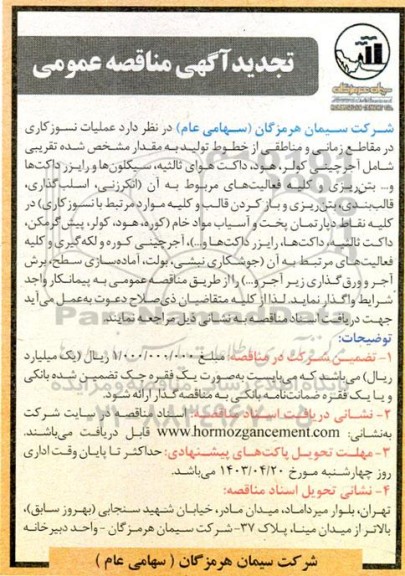 تجدید آگهی مناقصه عمومی
شرکت سیمان هرمزگان (سهامی عام) در نظر دارد عملیات نسوزکاری
در مقاطع زمانی و مناطقی از خطوط تولید به مقدار مشخص شده تقریبی
شامل آجرچینی کولر، هود، داکت هوای ثالثیه، سیکلون‌ها و رایزر داکت‌ها
و... بتن‌ریزی و کلیه فعالیت‌های مربوط به آن (انکرزنی، اسلب‌گذاری،
قالب‌بندی، بتن‌ریزی و باز کردن قالب و کلیه موارد مرتبط با نسوزکاری) در
کلیه نقاط دپارتمان پخت و آسیاب مواد خام (کوره، هود، کولر، پیش گرمکن،
داکت ثالثیه، داکت‌ها، رایزر داکت‌ها و..)، آجرچینی کوره و لکه‌گیری و کلیه
فعالیت‌های مرتبط به آن (جوشکاری نبشی، بولت، آماده‌سازی سطح، برش
آجر و ورق‌گذاری زیر آجر و...) را از طریق مناقصه عمومی به پیمانکار واجد
شرایط واگذار نماید. لذا از کلیه متقاضیان ذی‌صلاح دعوت به‌عمل می‌آید
جهت دریافت اسناد مناقصه به نشانی ذیل مراجعه نمایند.
توضیحات:
۱- تضمین شرکت در مناقصه: مبلغ ۱/۰۰۰/۰۰۰/۰۰۰ ریال (یک میلیارد
ریال) می‌باشد که می‌بایست به‌صورت یک فقره چک تضمین شده بانکی
و یا یک فقره ضمانت‌نامه بانکی به مناقصه‌گذار ارائه شود.
۲- نشانی دریافت اسناد مناقصه: اسناد مناقصه از وب‌سایت شرکت
به‌نشانی: www.hormozgancement.com قابل دریافت می‌باشند.
۳- مهلت تحویل پاکت‌های پیشنهادی: حداکثر تا پایان وقت اداری
روز چهارشنبه مورخ ۱۴۰۳/۰۴/۲۰ می‌باشد.
۴- نشانی تحویل اسناد مناقصه:
تهران، بلوار میرداماد، میدان مادر، خیابان شهید سنجابی (بهروز سابق)،
بالاتر از میدان مینا، پلاک ۳۷- شرکت سیمان هرمزگان - واحد دبیرخانه
شرکت سیمان هرمزگان ( سهامی عام )